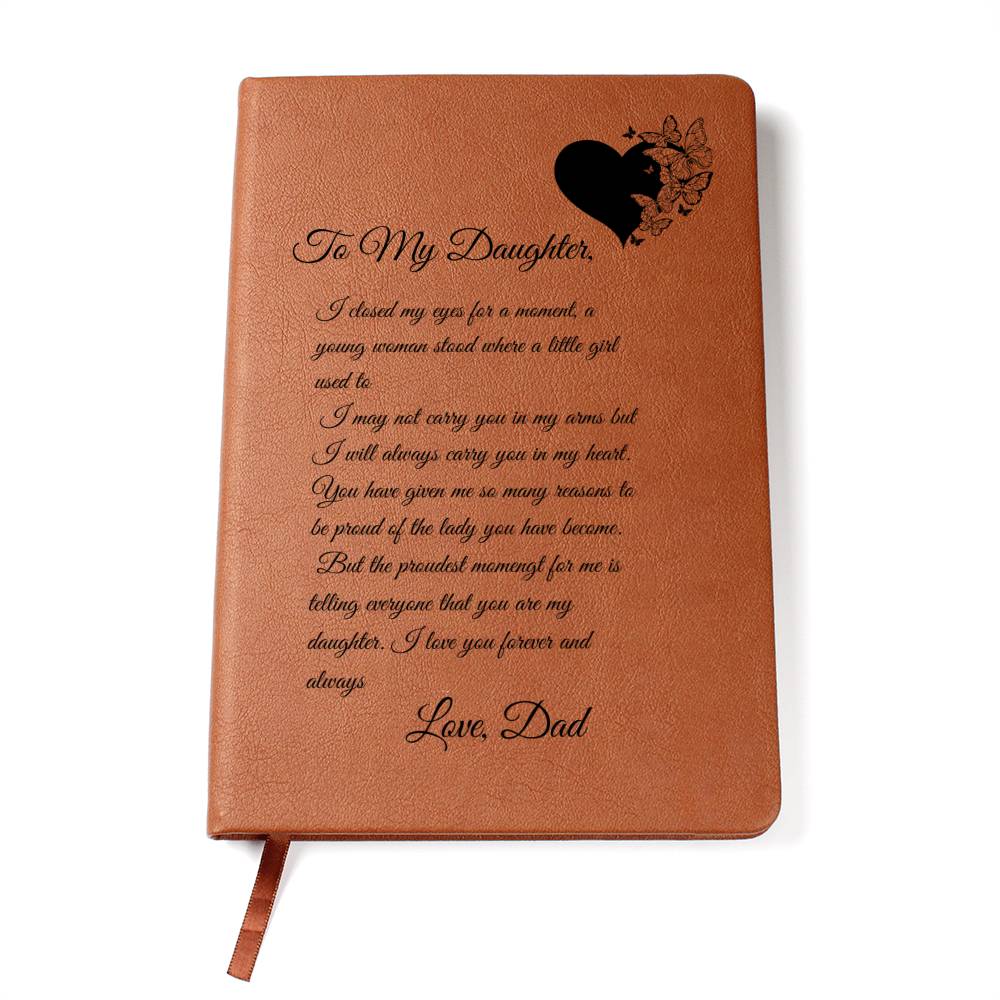 To My Daughter,
I closed my eyes for a moment, a
young woman stood where a little girl
used to
I may not carry you in my arms but
I will always carry you in my heart.
You have given me so many reasons to
be proud of the lady you have become.
But the proudest momengt for me is
telling everyone that you are my
daughter. I love you forever and
always
Love, Dad